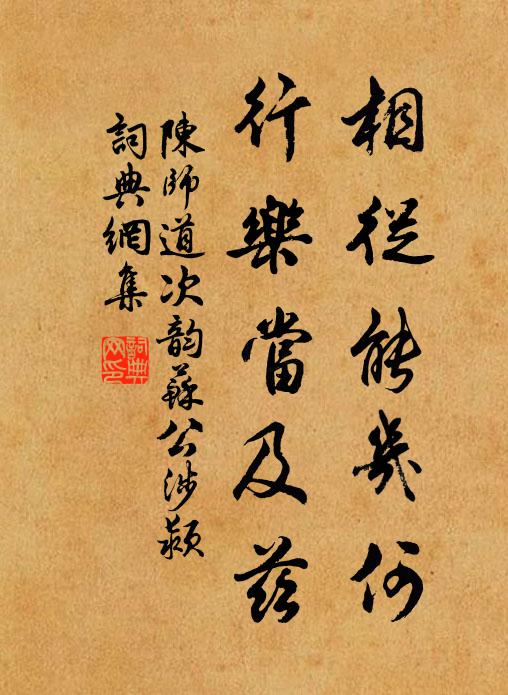 相從能幾何
行樂當及茲
陳師道次韵蘇公涉潁
詞典網集
詞典網印